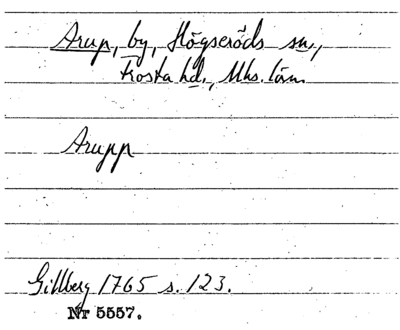 Arup, by, Högseröds sn.,
Frosta hd., Mhs. län.
Arupp
Gillberg 1765 s. 123.
Nr 5557.